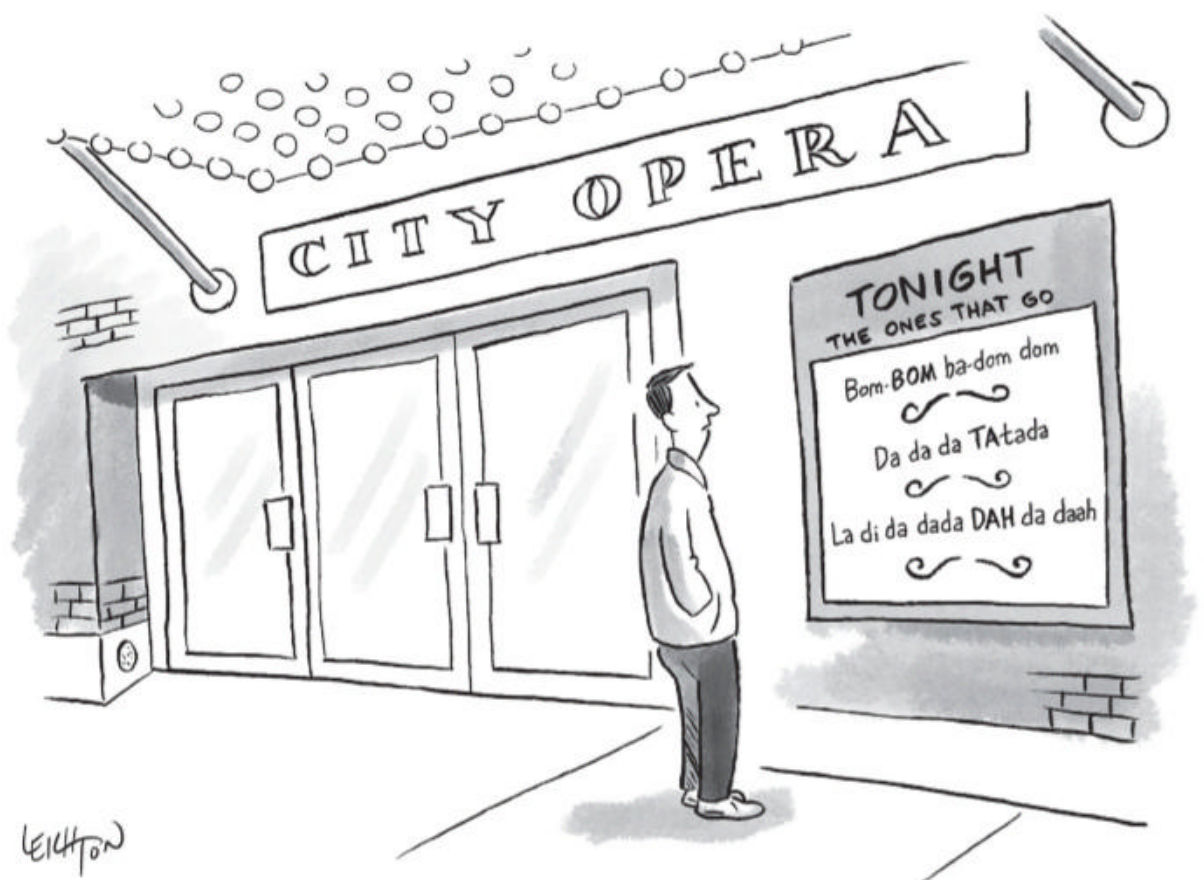 CITY OPERA
TONIGHT
THE ONES THAT GO
Bom-BOM ba-dom dom
Da da da TAtada
La di da dada DAH da daah
LEIGHTON